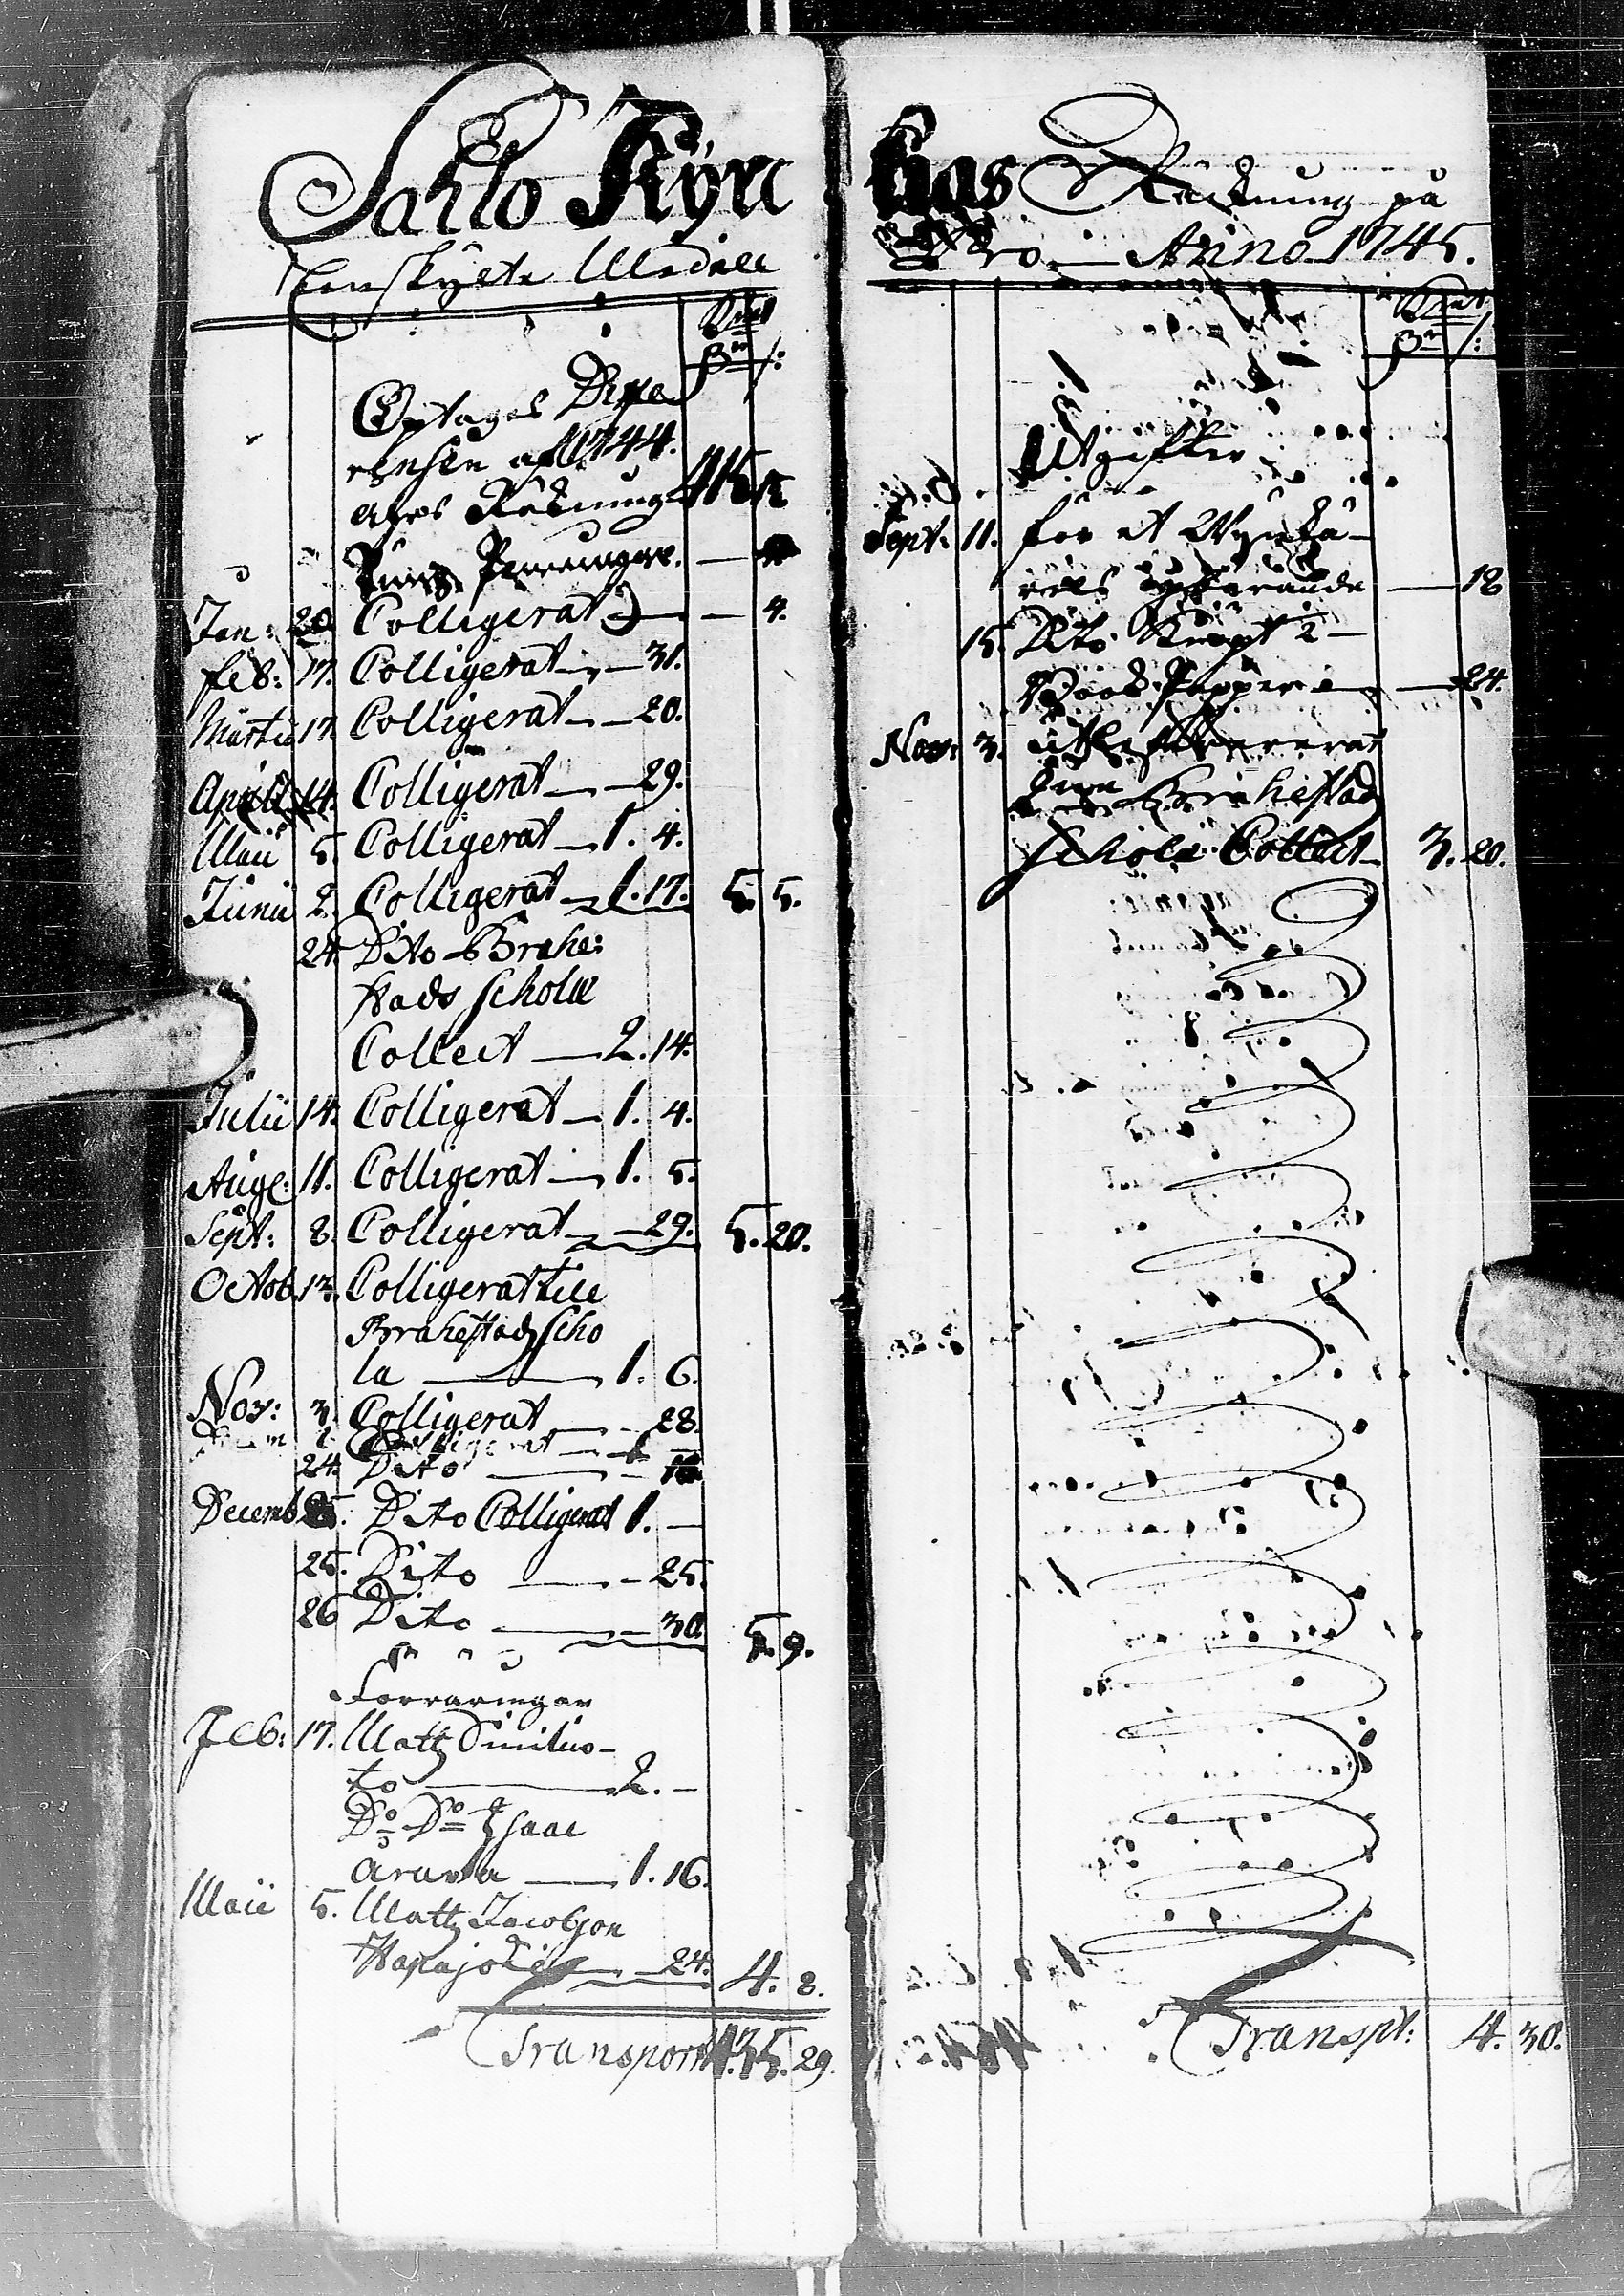 Sahlo Kyrc
Enskylte Medell
Optages Diffe
rensen af 1744.
ahrs Räkning 115
Pung Penningar. —
Jan: 20. Colligerat — 4.
Feb: 17. Colligerat — 31.
Martii 17. Colligerat — 20.
April 14. Colligerat — 29.
Maii 5. Colligerat — 1. 4.
Junii 2. Colligerat — 1. 17. 5. 5.
24. Dito Brahe:
stads scholæ
Collect — 2. 14.
Julii 14. Colligerat — 1. 4.
Aug: 11. Colligerat — 1. 5.
Sept: 8. Colligerat — 29. 5. 20.
Octob. 13. Colligerat till
Brahestads Scho
la — 1. 6.
Nov: 3. Colligerat — 28.
Colligerat
24. Dito —
Decemb 25. Dito Colligerat 1. —
25. Dito — 25.
26 Dito — 30 5. 9.
Förräringar
Feb: 17. Matts
to — 2. —
Do Do Isaac
— 1. 16.
Maii 5. Matts Jacobson
Hapajoki — 24. 4. 8.
Transport 135. 29.
kas Räckning på
Pro — Anno 1745.
Utgifter
Sept: 11. för et
— 18
15. Dito Köpt 2
Book Papper — 24.
Nov: 3.
Brahestad
schola Collect 3. 20.
Transpt: 4. 30.